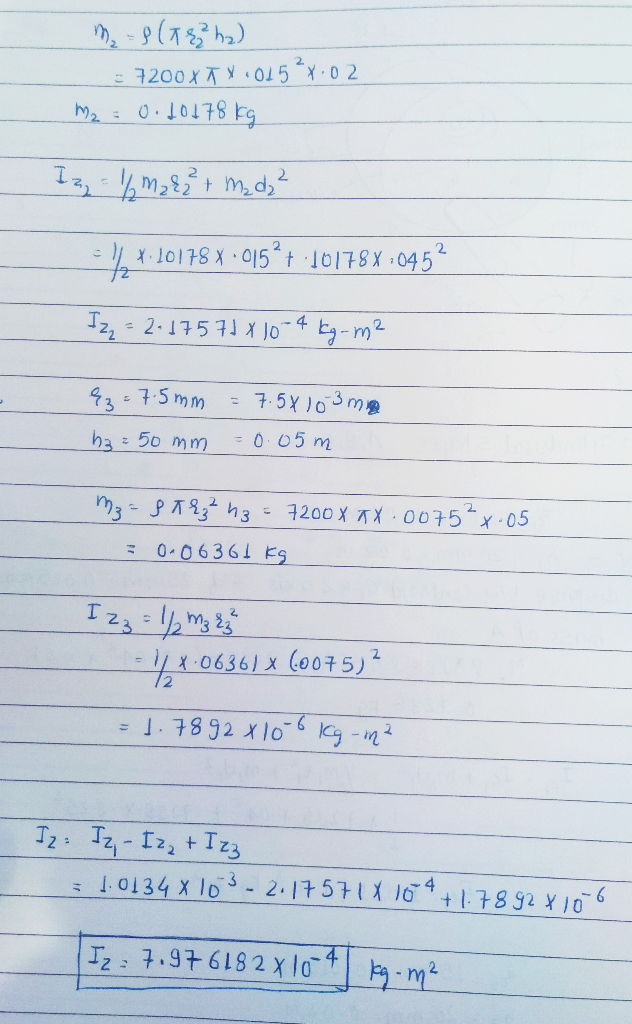 m₂ = ρ(πr₂²h₂)
= 7200×π×.015²×.02
m₂ = 0.10178 kg
I_z₂ = 1/2 m₂r₂² + m₂d₂²
= 1/2 ×.10178×.015² + .10178×.045²
I_z₂ = 2.17571 × 10⁻⁴ kg-m²
r₃ = 7.5 mm = 7.5×10⁻³ m
h₃ = 50 mm = 0.05 m
m₃ = ρπr₃²h₃ = 7200×π×.0075²×.05
= 0.06361 kg
I_z₃ = 1/2 m₃r₃²
= 1/2 ×.06361×(.0075)²
= 1.7892 ×10⁻⁶ kg-m²
I_z = I_z₁ - I_z₂ + I_z₃
= 1.0134 × 10⁻³ - 2.17571 × 10⁻⁴ + 1.7892 × 10⁻⁶
I_z = 7.976182 × 10⁻⁴ kg-m²